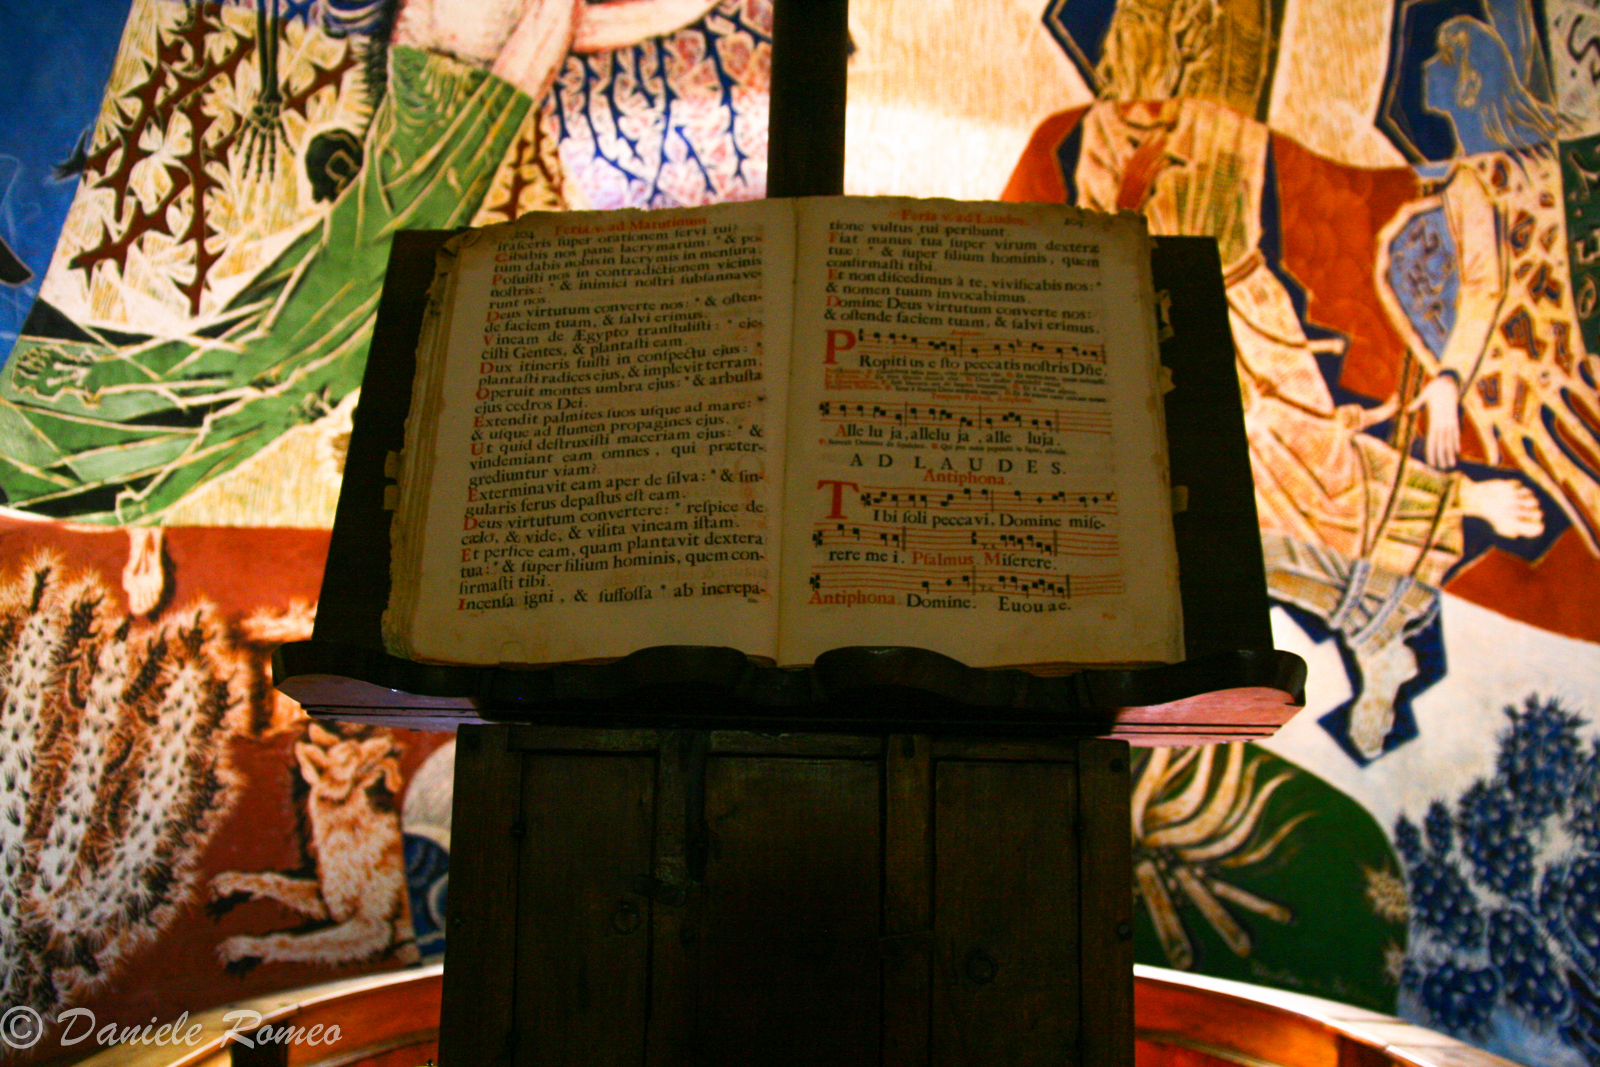 204 Feria v. ad Matutinum.
iraſceris ſuper orationem ſervi tui?
Cibabis nos pane lacrymarum: * & po-
tum dabis nobis in lacrymis in menſura?
Poſuiſti nos in contradictionem vicinis
noſtris: * & inimici noſtri ſubſannave-
runt nos.
Deus virtutum converte nos: * & oſten-
de faciem tuam, & ſalvi erimus.
Vineam de Ægypto tranſtuliſti: * eje-
ciſti Gentes, & plantaſti eam.
Dux itineris fuiſti in conſpectu ejus: *
plantaſti radices ejus, & implevit terram.
Operuit montes umbra ejus: * & arbuſta
ejus cedros Dei.
Extendit palmites ſuos uſque ad mare: *
& uſque ad flumen propagines ejus.
Ut quid deſtruxiſti maceriam ejus: * &
vindemiant eam omnes, qui præter-
grediuntur viam?
Exterminavit eam aper de ſilva: * & ſin-
gularis ferus depaſtus eſt eam.
Deus virtutum convertere: * reſpice de
cælo, & vide, & viſita vineam iſtam.
Et perfice eam, quam plantavit dextera
tua: * & ſuper filium hominis, quem con-
firmaſti tibi.
Incenſa igni, & ſuffoſſa * ab increpa-
Feria v. ad Laudes. 205
tione vultus tui peribunt.
Fiat manus tua ſuper virum dexteræ
tuæ: * & ſuper filium hominis, quem
confirmaſti tibi.
Et non diſcedimus à te, vivificabis nos: *
& nomen tuum invocabimus.
Domine Deus virtutum converte nos:
& oſtende faciem tuam, & ſalvi erimus.
PRopitius eſto peccatis noſtris Dñe.
Alle lu ja, allelu ja, alle luja.
AD LAUDES.
Antiphona.
TIbi ſoli peccavi, Domine miſe-
rere me i. Pſalmus. Miſerere.
Antiphona. Domine. Euouae.
© Daniele Romeo